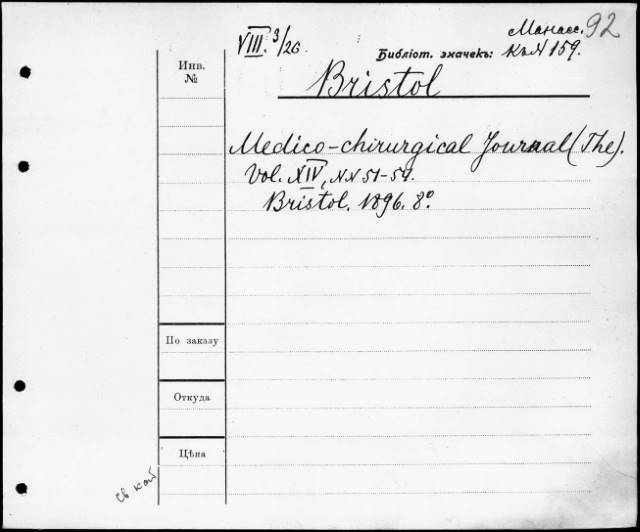 Манасс. 92
VIII. 3/26.
Библіот. значекъ: Къ N 159.
Инв.
№
Bristol
Medico-chirurgical Journal (The).
Vol. XIV, NN 51-54.
Bristol. 1896. 8°.
По заказу
Откуда
Цѣна
Св кат